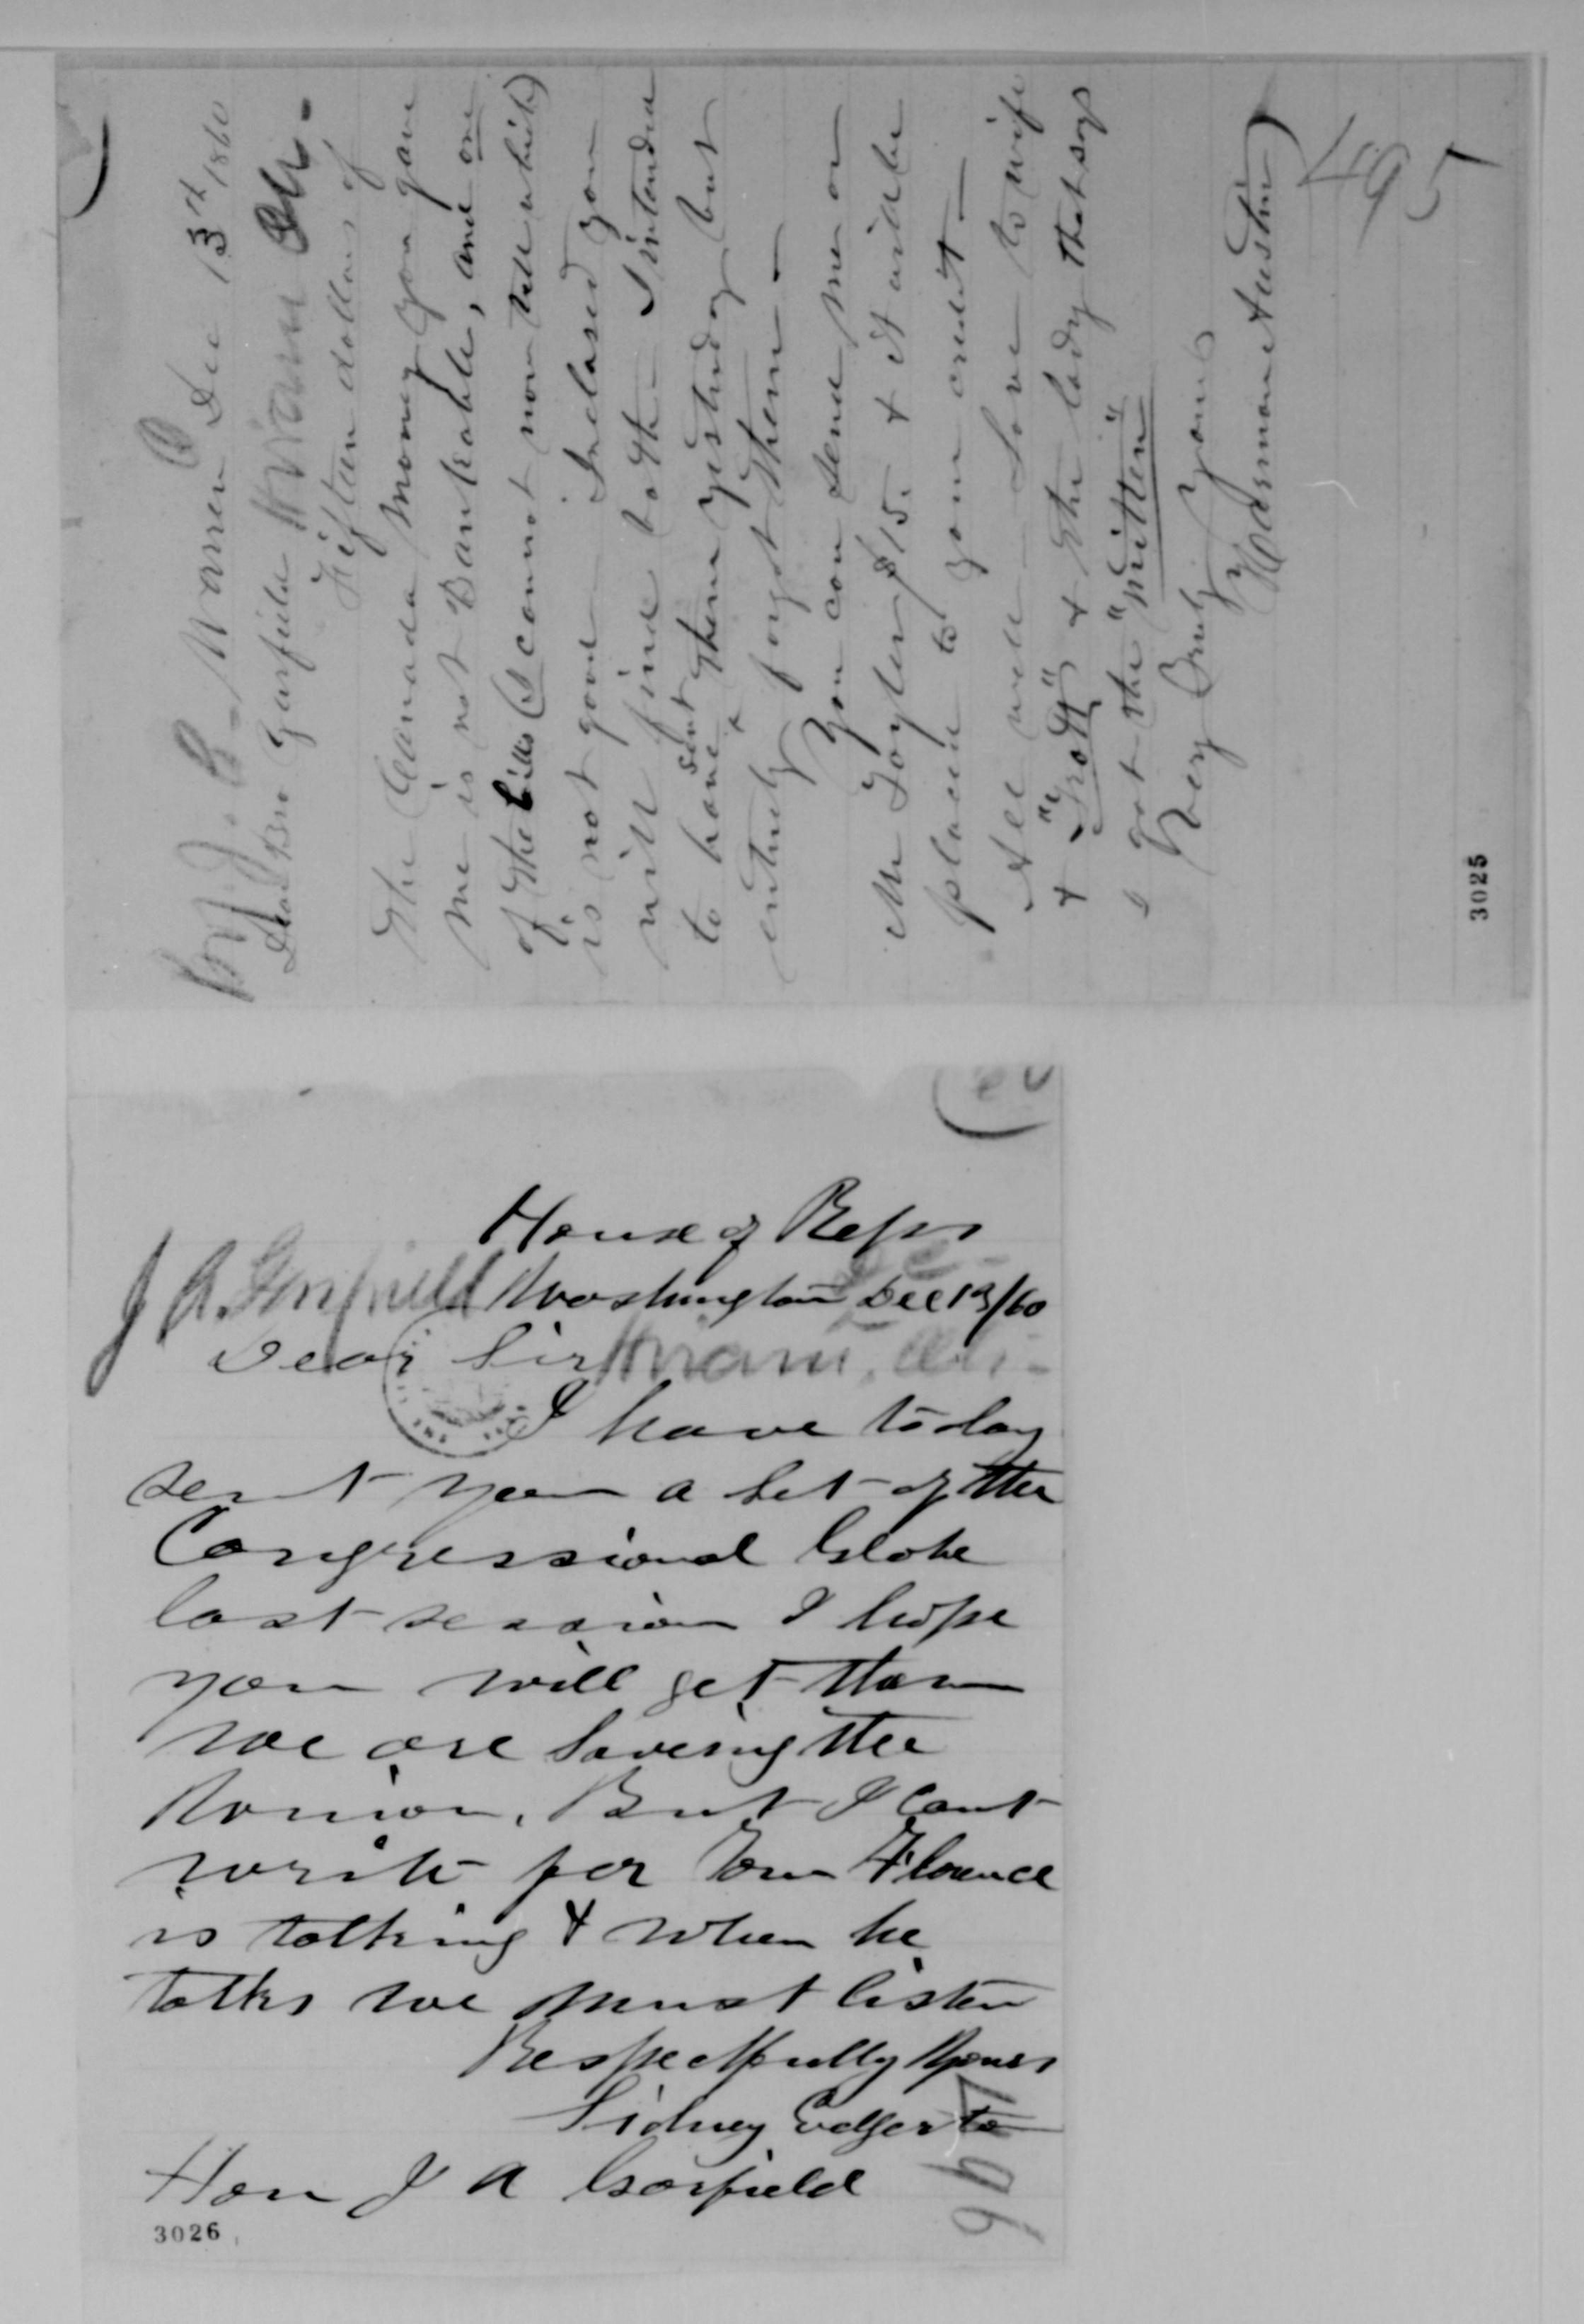 Warren O Dec 13th 1860
Dear Bro Garfield Hiram Oh.
Fifteen dollars of
the Canada Money you gave
me is not Bankable, and one
of the bills (I cannot now tell which)
is not good — Inclosed you
will find both — I intended
to have sent them yesterday but
entirely forgot them —
You can send me or
Mr Taylor $15. & it will be
placed to your credit —
All well — Love to wife
& "Trott" & the lady that says
I got the "mitten"
Very Truly Yours
Harmon Austin
495
3025
House of Reps
J A. Garfield Washington Dec 13/60
Dear Sir Hiram, Oh.
I have to day
sent you a set of the
Congressional Globe
last session I hope
you will get them
we are saveing the
Union. But I cant
write for Tom Florence
is talking & when he
talks we must listen
Respectfully Yours
Sidney Edgerto
Hon J A Garfield
496
3026